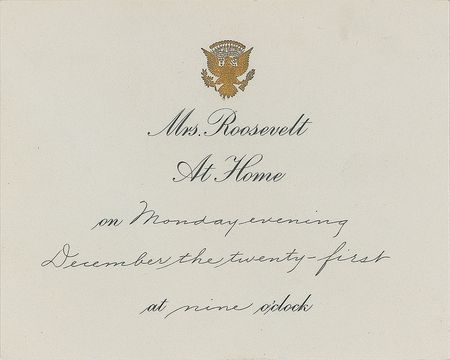 Mrs. Roosevelt
At Home
on Monday evening
December the twenty-first
at nine o'clock